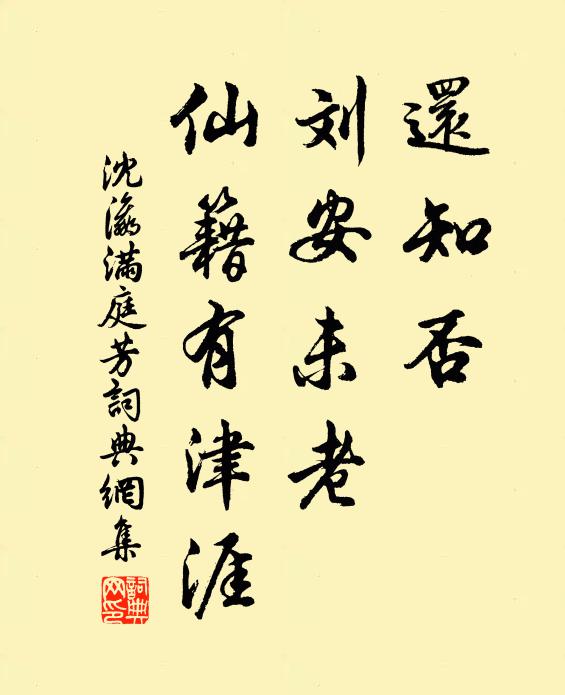 還知否
刘安未老
仙籍有津涯
沈瀛满庭芳詞典網集
詞典网印